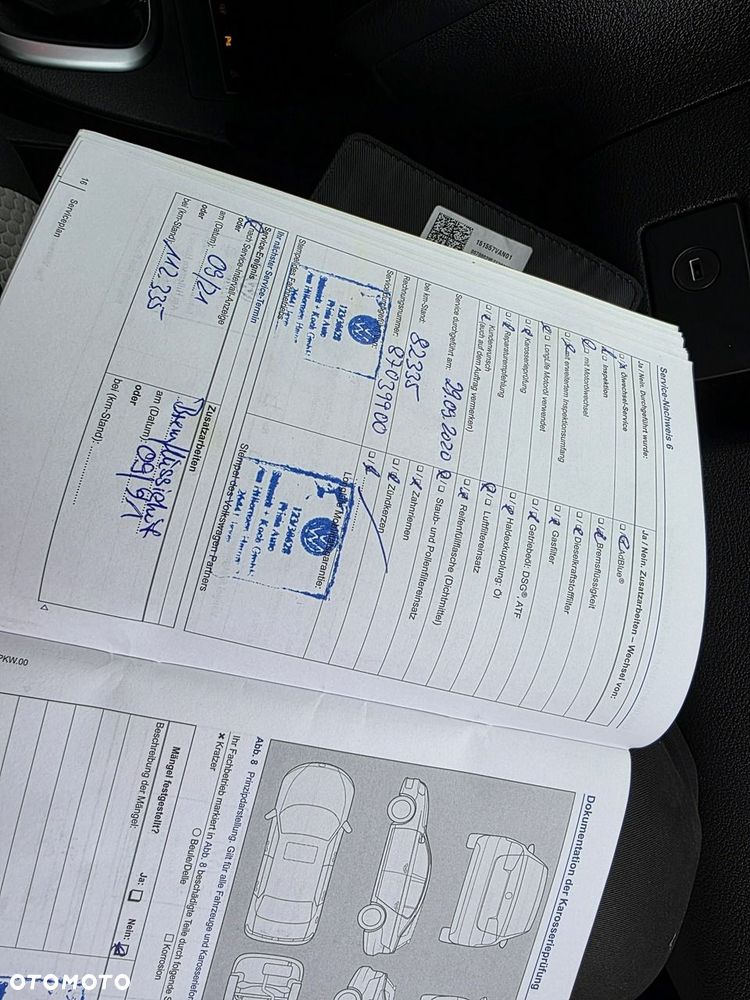 Service-Nachweis 6
Ja / Nein. Durchgeführt wurde:
Ölwechsel-Service
Inspektion
mit Motorölwechsel
mit erweitertem Inspektionsumfang
LongLife Motoröl verwendet
Karosserieprüfung
Reparaturempfehlung
Kundenwunsch
(auch auf dem Auftrag vermerken)
Service durchgeführt am: 29.09.2020
bei km-Stand: 82335
Rechnungsnummer: 87039900
Stempel des Fachbetriebs
Ihr nächster Service-Termin
Service-Ereignis
nach Service-Intervall-Anzeige
oder
am (Datum): 09/21
oder
bei (km-Stand): 112.335
Ja / Nein. Zusatzarbeiten – Wechsel von:
AdBlue®
Bremsflüssigkeit
Dieselkraftstofffilter
Gasfilter
Getriebeöl: DSG® ATF
Haldexkupplung: Öl
Luftfiltereinsatz
Reifenfüllflasche (Dichtmittel)
Staub- und Pollenfiltereinsatz
Zahnriemen
Zündkerzen
Stempel des Volkswagen Partners
Zusatzarbeiten
Bremflüssigkeit
am (Datum): 09/21
oder
bei (km-Stand):
16
Serviceplan
PKW.00
Dokumentation der Karosserieprüfung
Abb. 8 Prinzipdarstellung. Gilt für alle Fahrzeuge und
Ihr Fachbetrieb markiert in Abb. 8 beschädigte Teile durch folgende
Kratzer
Beule/Delle
Korrosion
Mängel festgestellt?
Ja:
Nein:
Beschreibung der Mängel:
151557VAN01
OTOMOTO